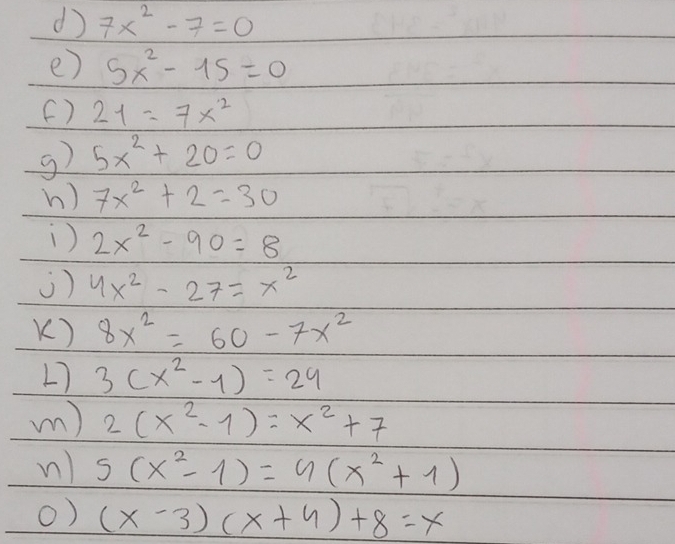 d) 7x² - 7 = 0
e) 5x² - 15 = 0
f) 21 = 7x²
g) 5x² + 20 = 0
h) 7x² + 2 = 30
i) 2x² - 90 = 8
j) 4x² - 27 = x²
k) 8x² = 60 - 7x²
L) 3(x² - 1) = 24
m) 2(x² - 1) = x² + 7
n) 5(x² - 1) = 4(x² + 1)
o) (x - 3)(x + 4) + 8 = x